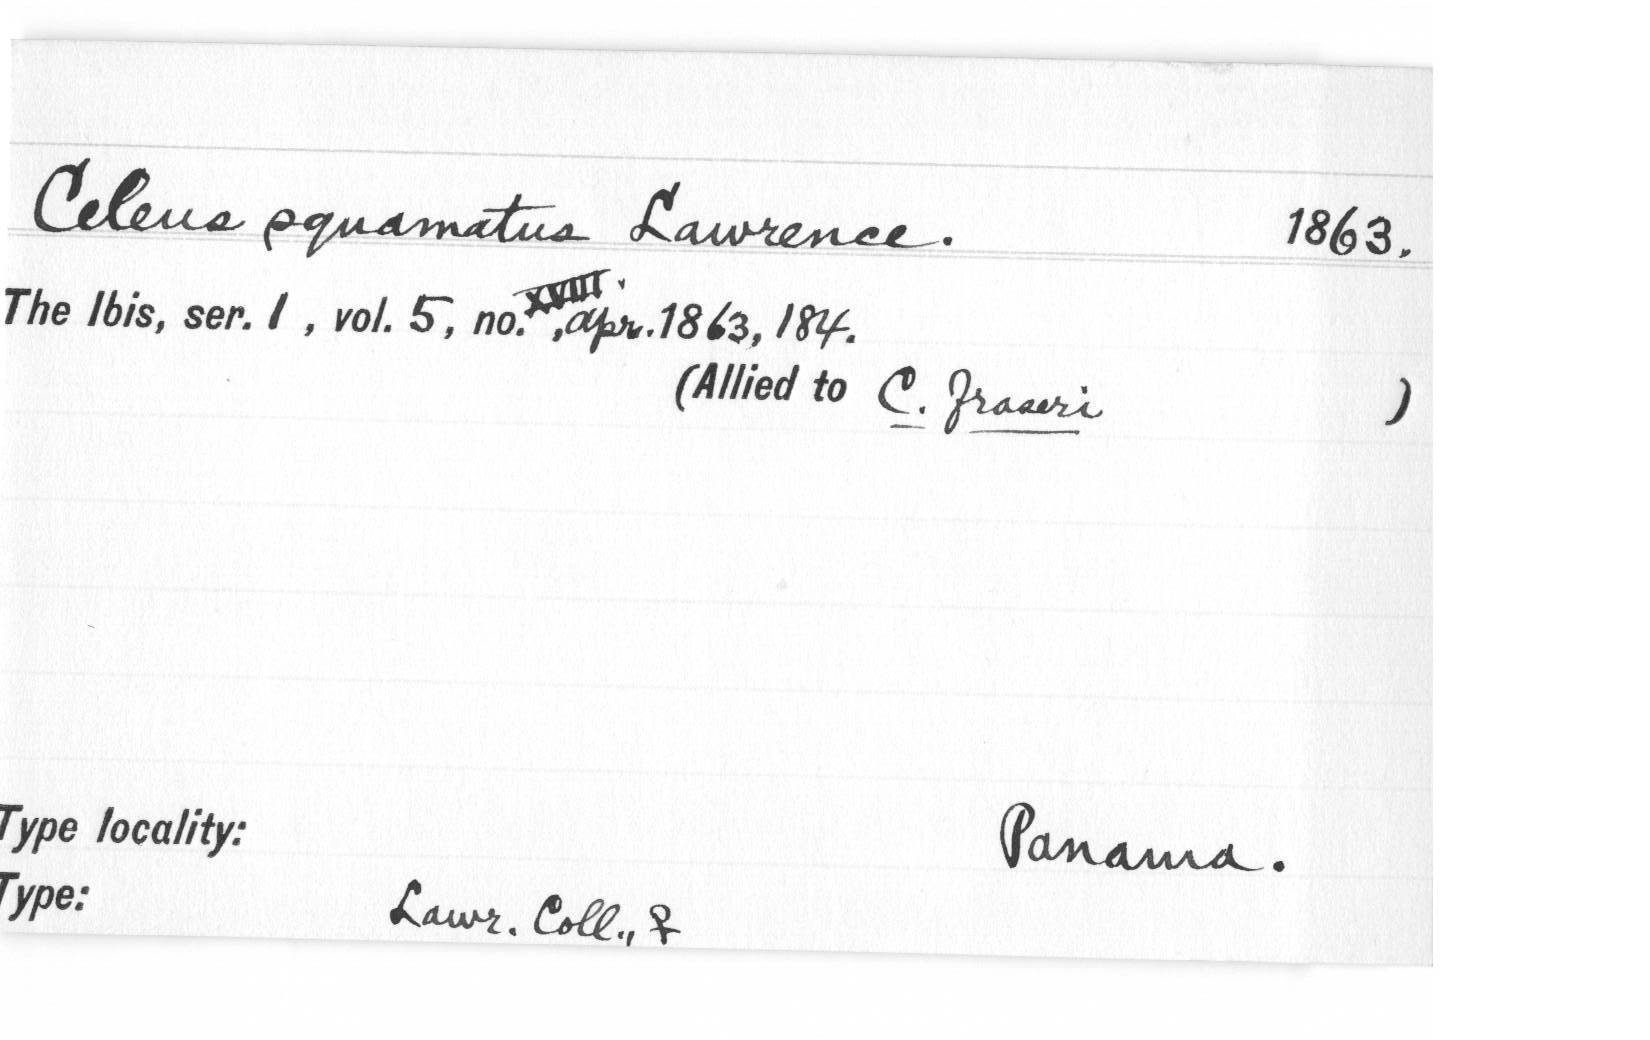 Celeus squamatus Lawrence. 1863.
The Ibis, ser. 1, vol. 5, no. XVIII, Apr. 1863, 184.
(Allied to C. fraseri )
Type locality: Panama.
Type: Lawr. Coll., ♀